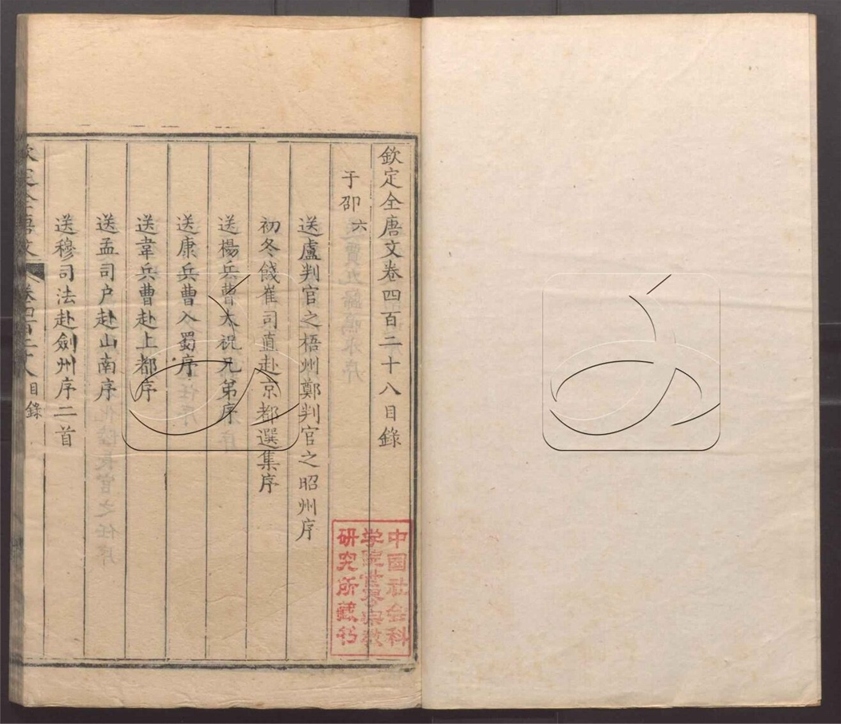 欽定全唐文卷四百二十八目錄
于卲六
送盧判官之梧州鄭判官之昭州序
初冬餞崔司直赴京都選集序
送楊兵曹大祝兄弟序
送康兵曹入蜀序
送韋兵曹赴上都序
送孟司户赴山南序
送穆司法赴劍州序二首
欽定全唐文 卷四百二十八 目錄
中国社会科
学院世界宗教
研究所藏书